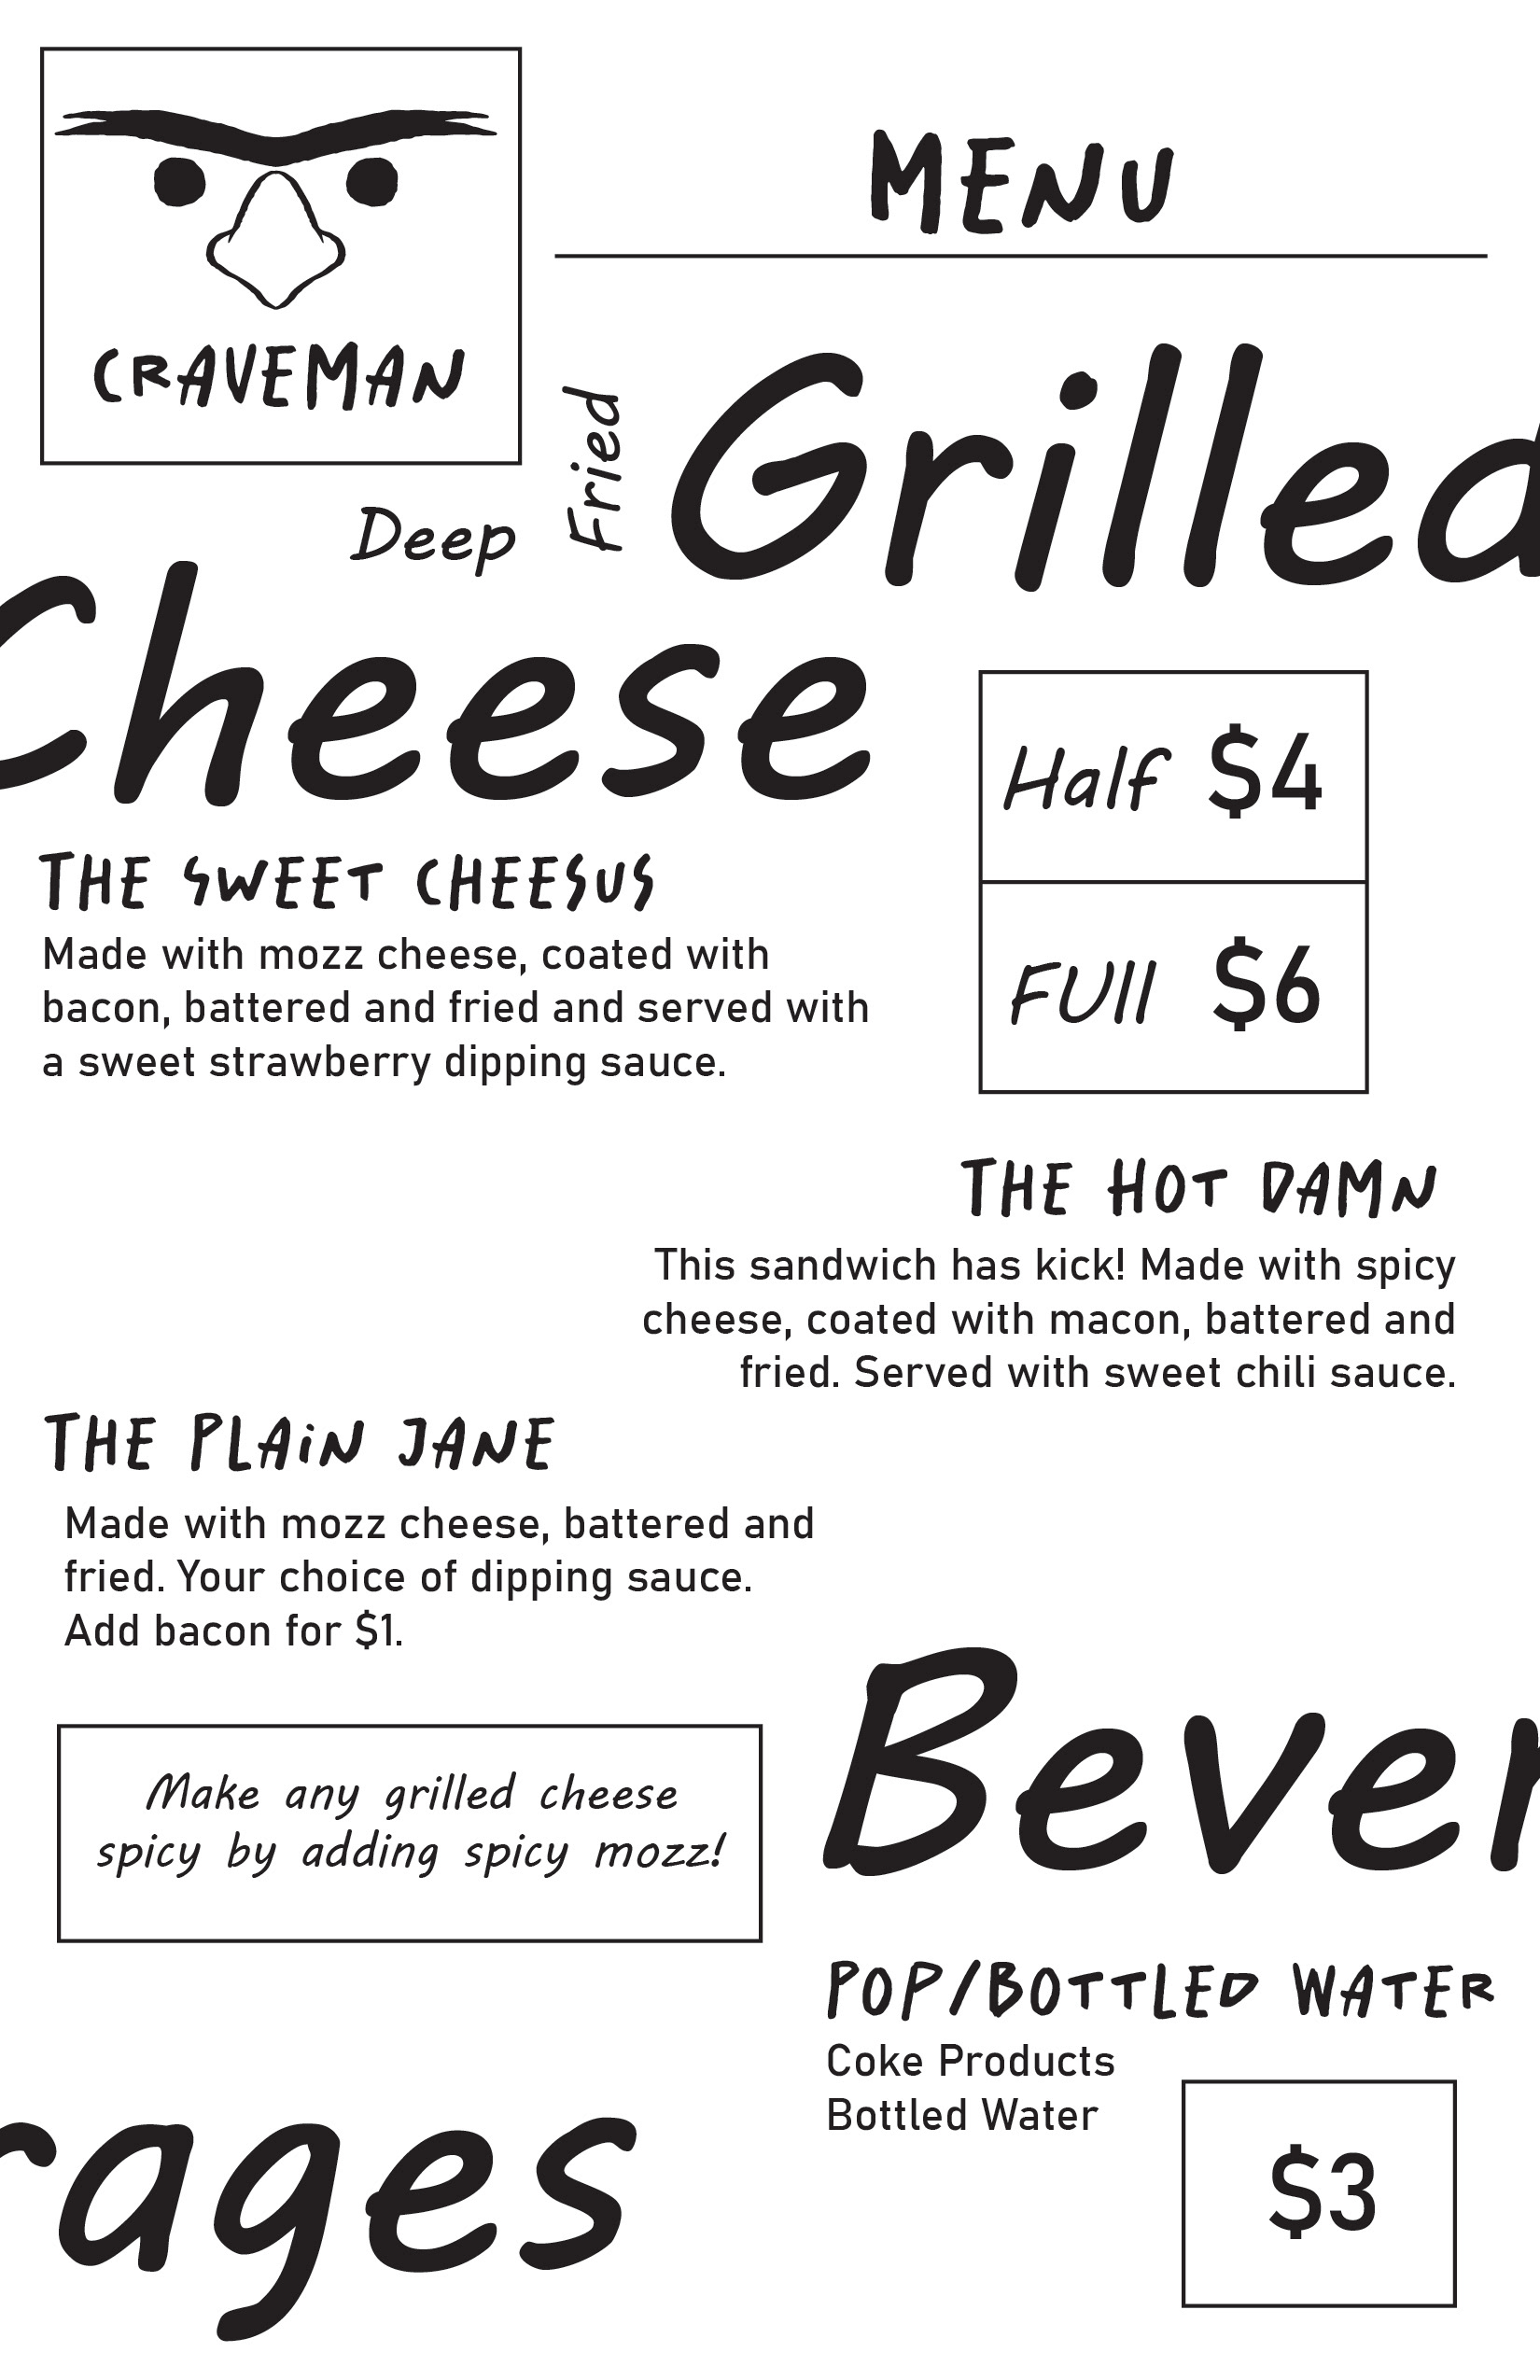 MENU
CRAVEMAN
Deep Fried Grilled
Cheese
Half $4
FUll $6
THE SWEET CHEESUS
Made with mozz cheese, coated with
bacon, battered and fried and served with
a sweet strawberry dipping sauce.
THE HOT DAMN
This sandwich has kick! Made with spicy
cheese, coated with macon, battered and
fried. Served with sweet chili sauce.
THE PLAiN JANE
Made with mozz cheese, battered and
fried. Your choice of dipping sauce.
Add bacon for $1.
Make any grilled cheese
spicy by adding spicy mozz!
Bever
rages
POP/BOTTLED WATER
Coke Products
Bottled Water
$3